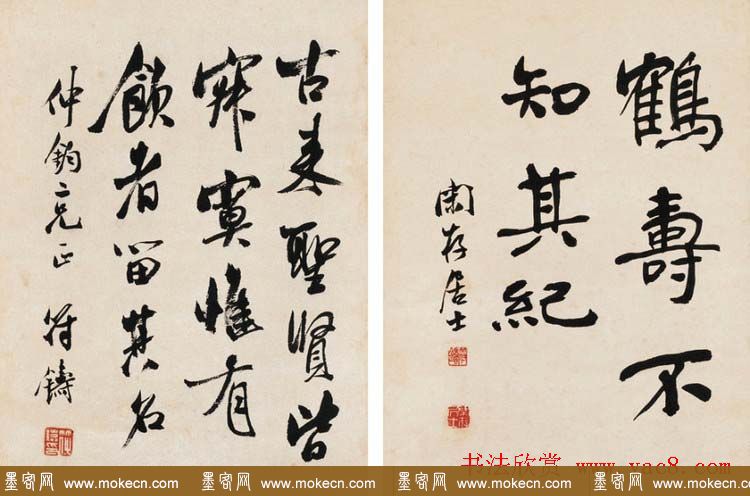 鶴壽不
知其紀
閑存居士
古来聖賢皆
寂寞惟有
飲者留其名
仲鈞二兄正 符鑄
书法欣赏 www.yac8.com
墨客网 www.mokecn.com 墨客网 www.mokecn.com 墨客网 www.mokecn.com 墨客网 www.mokecn.com 墨客网